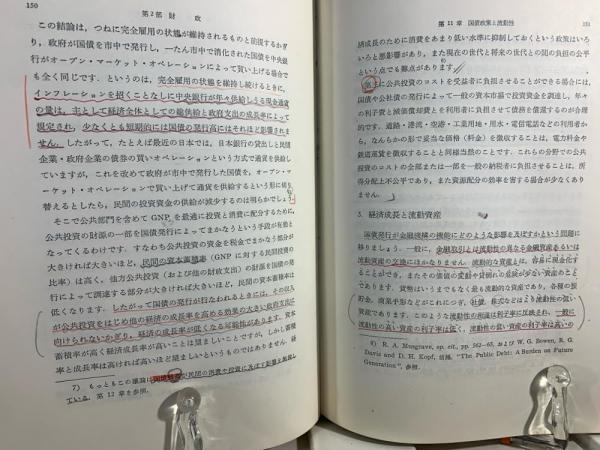 150
第2部 財 政
この結論は，つねに完全雇用の状態が維持されるものと前提するかぎ
り，政府が国債を市中で発行し，一たん市中で消化された国債を中央銀
行がオープン・マーケット・オペレーションによって買い上げる場合で
も全く同じです．というのは，完全雇用の状態を維持し続けるときに，
インフレーションを招くことなしに中央銀行が年々供給しうる現金通貨
の量は，主として経済全体としての総供給と政府支出の成長率によって
規定され，少なくとも短期的には国債の発行高にはそれほど影響されま
せん．したがって，たとえば最近の日本では，日本銀行の貸出しと民間
企業・政府企業の債券の買いオペレーションという方式で通貨を供給し
ていますが，これを改めて政府が市中で発行した国債を，オープン・マ
ーケット・オペレーションで買い上げて通貨を供給するという形に切り
替えるとしたら，民間の投資資金の供給が減少するのは明らかでしょう．
そこで公共部門を含めて GNP を最適に投資と消費に配分するために，
公共投資の財源の一部を国債発行によってまかなうという手段が有効と
なってくるわけです．すなわち公共投資の資金を税金でまかなう部分が
大きければ大きいほど，民間の資本蓄積率（GNP に対する民間投資の
比率）は高く，他方公共投資（および他の財政支出）の財源を国債の発
行によって調達する部分が大きければ大きいほど，民間の資本蓄積率は
低くなります．したがって国債の発行が行なわれるときには，その収入
が公共投資をはじめ他の経済の成長率を高める効果の大きい政府支出に
向けられないかぎり，経済の成長率が低くなる可能性があります．資本
蓄積率が高く経済成長率が高いことは望ましいことですが，しかし蓄積
率と成長率は高ければ高いほど望ましいというものではありません．経
7) もっともこの議論は国債発行が民間の消費や投資に及ぼす影響を無視し
ている．第12章を参照．
第11章 国債政策と流動性
151
済成長のために消費をあまり低い水準に抑制しておくという政策はいろ
いろと悪影響があり，また現在の世代と将来の世代との間の負担の公平
という点でも難点があります．
第三に公共投資のコストを受益者に負担させることができる場合には，
国債や公社債の発行によって一般の資本市場で投資資金を調達し，年々
の利子費と減価償却費とを利用者に負担させて債務を償還するのが合理
的です．道路・港湾・空港・工業用地・用水・電信電話などの利用者か
ら，なんらかの形で妥当な価格（料金）を徴収することは，電力料金や
鉄道運賃を徴収することと同様当然のことです．これらの分野での公共
投資のコストの全部または一部を一般の納税者に負担させることは，所
得分配上不公平であり，また資源配分の効率を害する場合が少なくあり
ません．
3. 経済成長と流動資産
国債発行が金融機関の機能にどのような影響を及ぼすかという問題に
移りましょう．一般に，金融取引とは流動性の異なる金融資産あるいは
流動資産の交換にほかなりません．流動的な資産とは，容易に現金化す
ることができ，またその価値の変動や貸倒れの危険が少ない資産のこと
であります．貨幣はいうまでもなく最も流動的な資産であり，各種の預
貯金，商業手形などがこれにつぎ，社債，株式などはより流動性の低い
資産であります．このような流動性の相違は利子率に反映され，一般に
流動性の高い資産の利子率は低く，流動性の低い資産の利子率は高いの
8) R. A. Musgrave, op. cit., pp. 562–65, および W. G. Bowen, R. G.
Davis and D. H. Kopf, 前掲, “The Public Debt: A Burden on Future
Generation”, 参照．